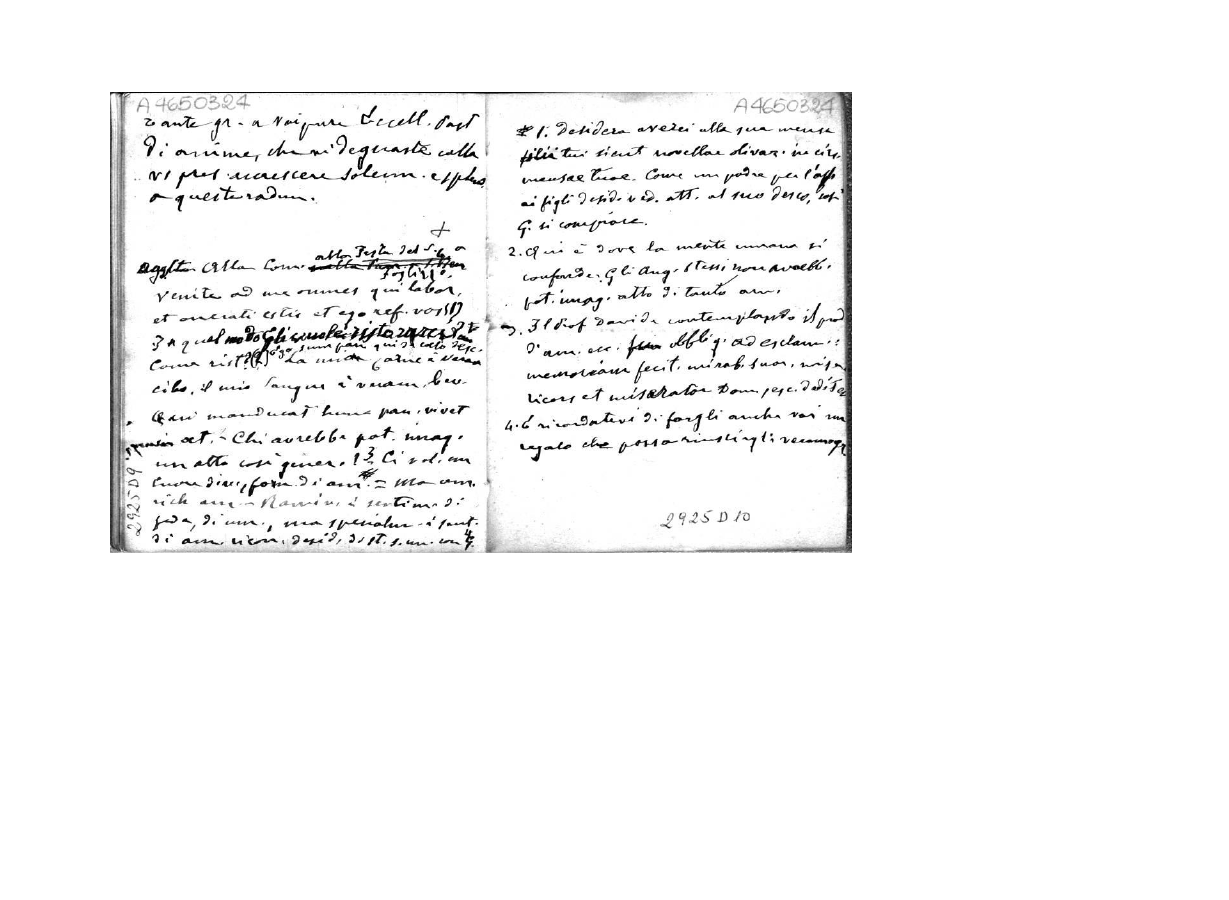 A4650324
tante gr. a voi pure Eccell. Past
di anime, che vi degnaste colla
vs pres. accrescere solenn. e splend.
a queste radun.
+
Alla Com. alla Festa del S.
Luglio
Venite ad me omnes qui labor.
et onerati estis et ego ref. vos (1)
In quel modo Gli
sum pan. qui de celo desc.
Come rist. La mia carne è veram
cibo, il mio sangue è veram. bev.
Qui manducat hunc pan. vivet
aet. - Chi avrebbe pot. imag.
un atto così gener. ! 3 Ci vol. un
Cuore div., forn. di am. = Ma am.
rich am. -
fede, di um., ma specialm. è sent.
di am. ricon. desid. di st. s. un. con G.
2925 D 9
A4650324
1. Desidera averci alla sua mensa
filii tui sicut novellae olivar. in circ.
mensae tuae. Come un padre per l'aff
ai figli desid. ved. att. al suo desco, così
G. si compiace.
2. Qui è dove la mente umana si
confonde: Gli Ang. stessi non avrebb.
pot. imag. atto di tanto am.
3. Il Prof Davide contemplando il prod
d'am. ecc. obblig. ad esclam.:
memoriam fecit. mirab. suor. mise
ricors et miserator Dom, esc. dedit e
4. E ricordatevi di fargli anche voi un
regalo che possa riuscirgli veram. gr
2925 D 10